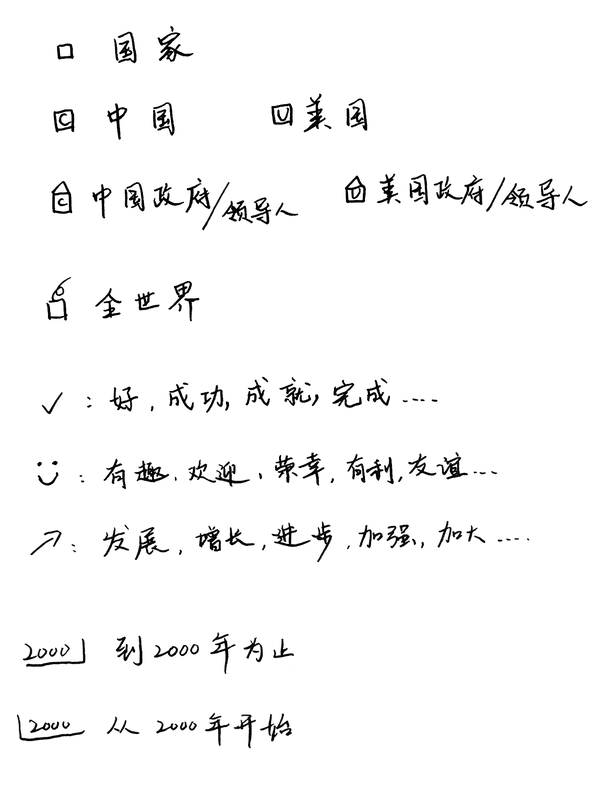 □ 国家
C 中国 U 美国
C 中国政府/领导人 U 美国政府/领导人
全世界
✓：好，成功，成就，完成....
有趣，欢迎，荣幸，有利，友谊...
↗：发展，增长，进步，加强，加大....
2000 到2000年为止
2000 从2000年开始